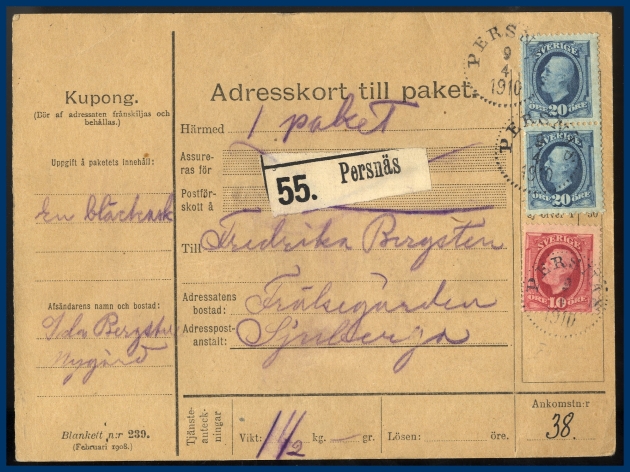 Kupong.
(Bör af adressaten frånskiljas och
behållas.)
Uppgift å paketets innehåll:
En bläckask
Afsändarens namn och bostad:
Ida Bergsten
Nygård
Blankett n:r 239.
(Februari 1908.)
Adresskort till paket.
Härmed 1 paket
Assure-
ras för
Postför-
skott å
55. Persnäs
Till Fredrika Bergsten
Adressatens
bostad: Frälsegården
Adresspost-
anstalt:
Tjänste-
anteck-
ningar
Vikt: 1 1/2 kg. — gr.
Lösen: öre.
Ankomstn:r
38.
PERSNÄS
9
4
1910
SVERIGE
ÖRE 20 ÖRE
PERSNÄS
1910
20
PERSNÄS
1910
SVERIGE
ÖRE 10 ÖRE